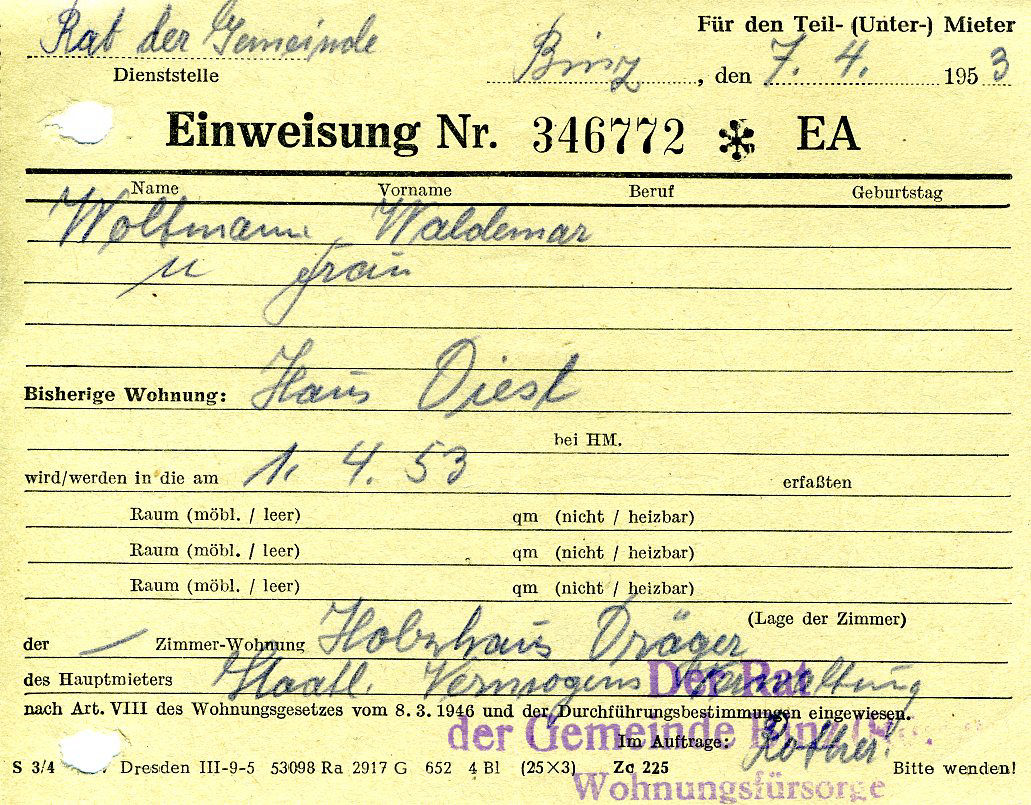 Für den Teil- (Unter-) Mieter
Rat der Gemeinde
Dienststelle
Binz, den 7. 4. 1953
Einweisung Nr. 346772 * EA
Name Vorname Beruf Geburtstag
Woltmann, Waldemar
u Frau
Bisherige Wohnung: Haus Diest
bei HM.
wird/werden in die am 1. 4. 53 erfaßten
Raum (möbl. / leer) qm (nicht / heizbar)
Raum (möbl. / leer) qm (nicht / heizbar)
Raum (möbl. / leer) qm (nicht / heizbar)
(Lage der Zimmer)
der — Zimmer-Wohnung Holzhaus Dräger
des Hauptmieters Staatl. Vermögens Verwaltung
nach Art. VIII des Wohnungsgesetzes vom 8. 3. 1946 und der Durchführungsbestimmungen eingewiesen.
Der Rat
der Gemeinde Binz
Wohnungsfürsorge
Im Auftrage: Rother
S 3/4 Dresden III-9-5 53098 Ra 2917 G 652 4 Bl (25×3) Zc 225 Bitte wenden!